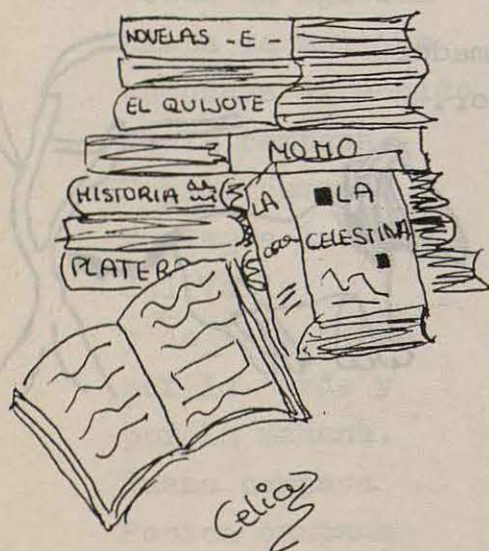 NOVELAS - E -
EL QUIJOTE
MOMO
HISTORIA
LA
LA
CELESTINA
PLATERO
Celia